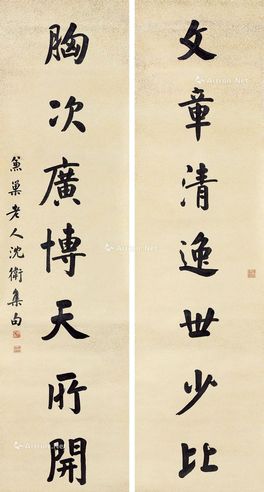 文章清逸世少比
胸次廣博天所開
兼巢老人沈衛集句